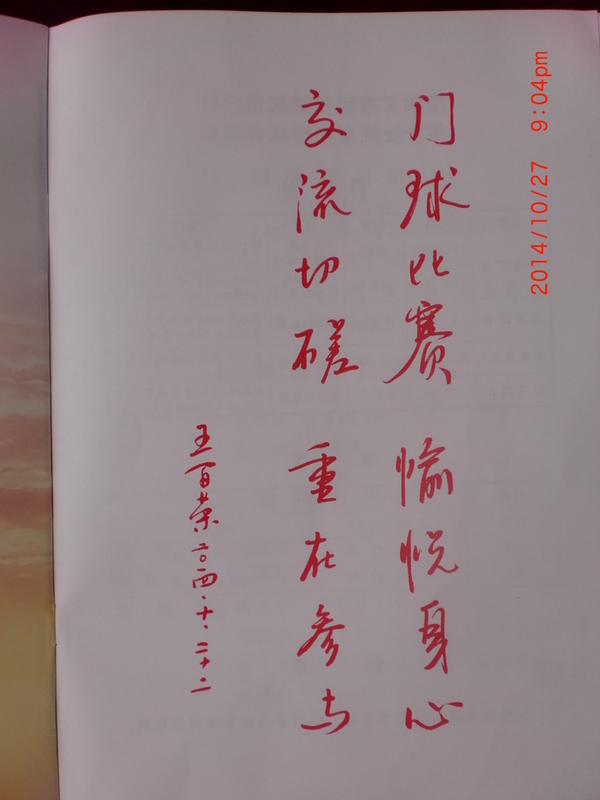 门球比赛 愉悦身心
交流切磋 重在参与
王百荣 二〇一四·十·二十二
2014/10/27 9:04pm